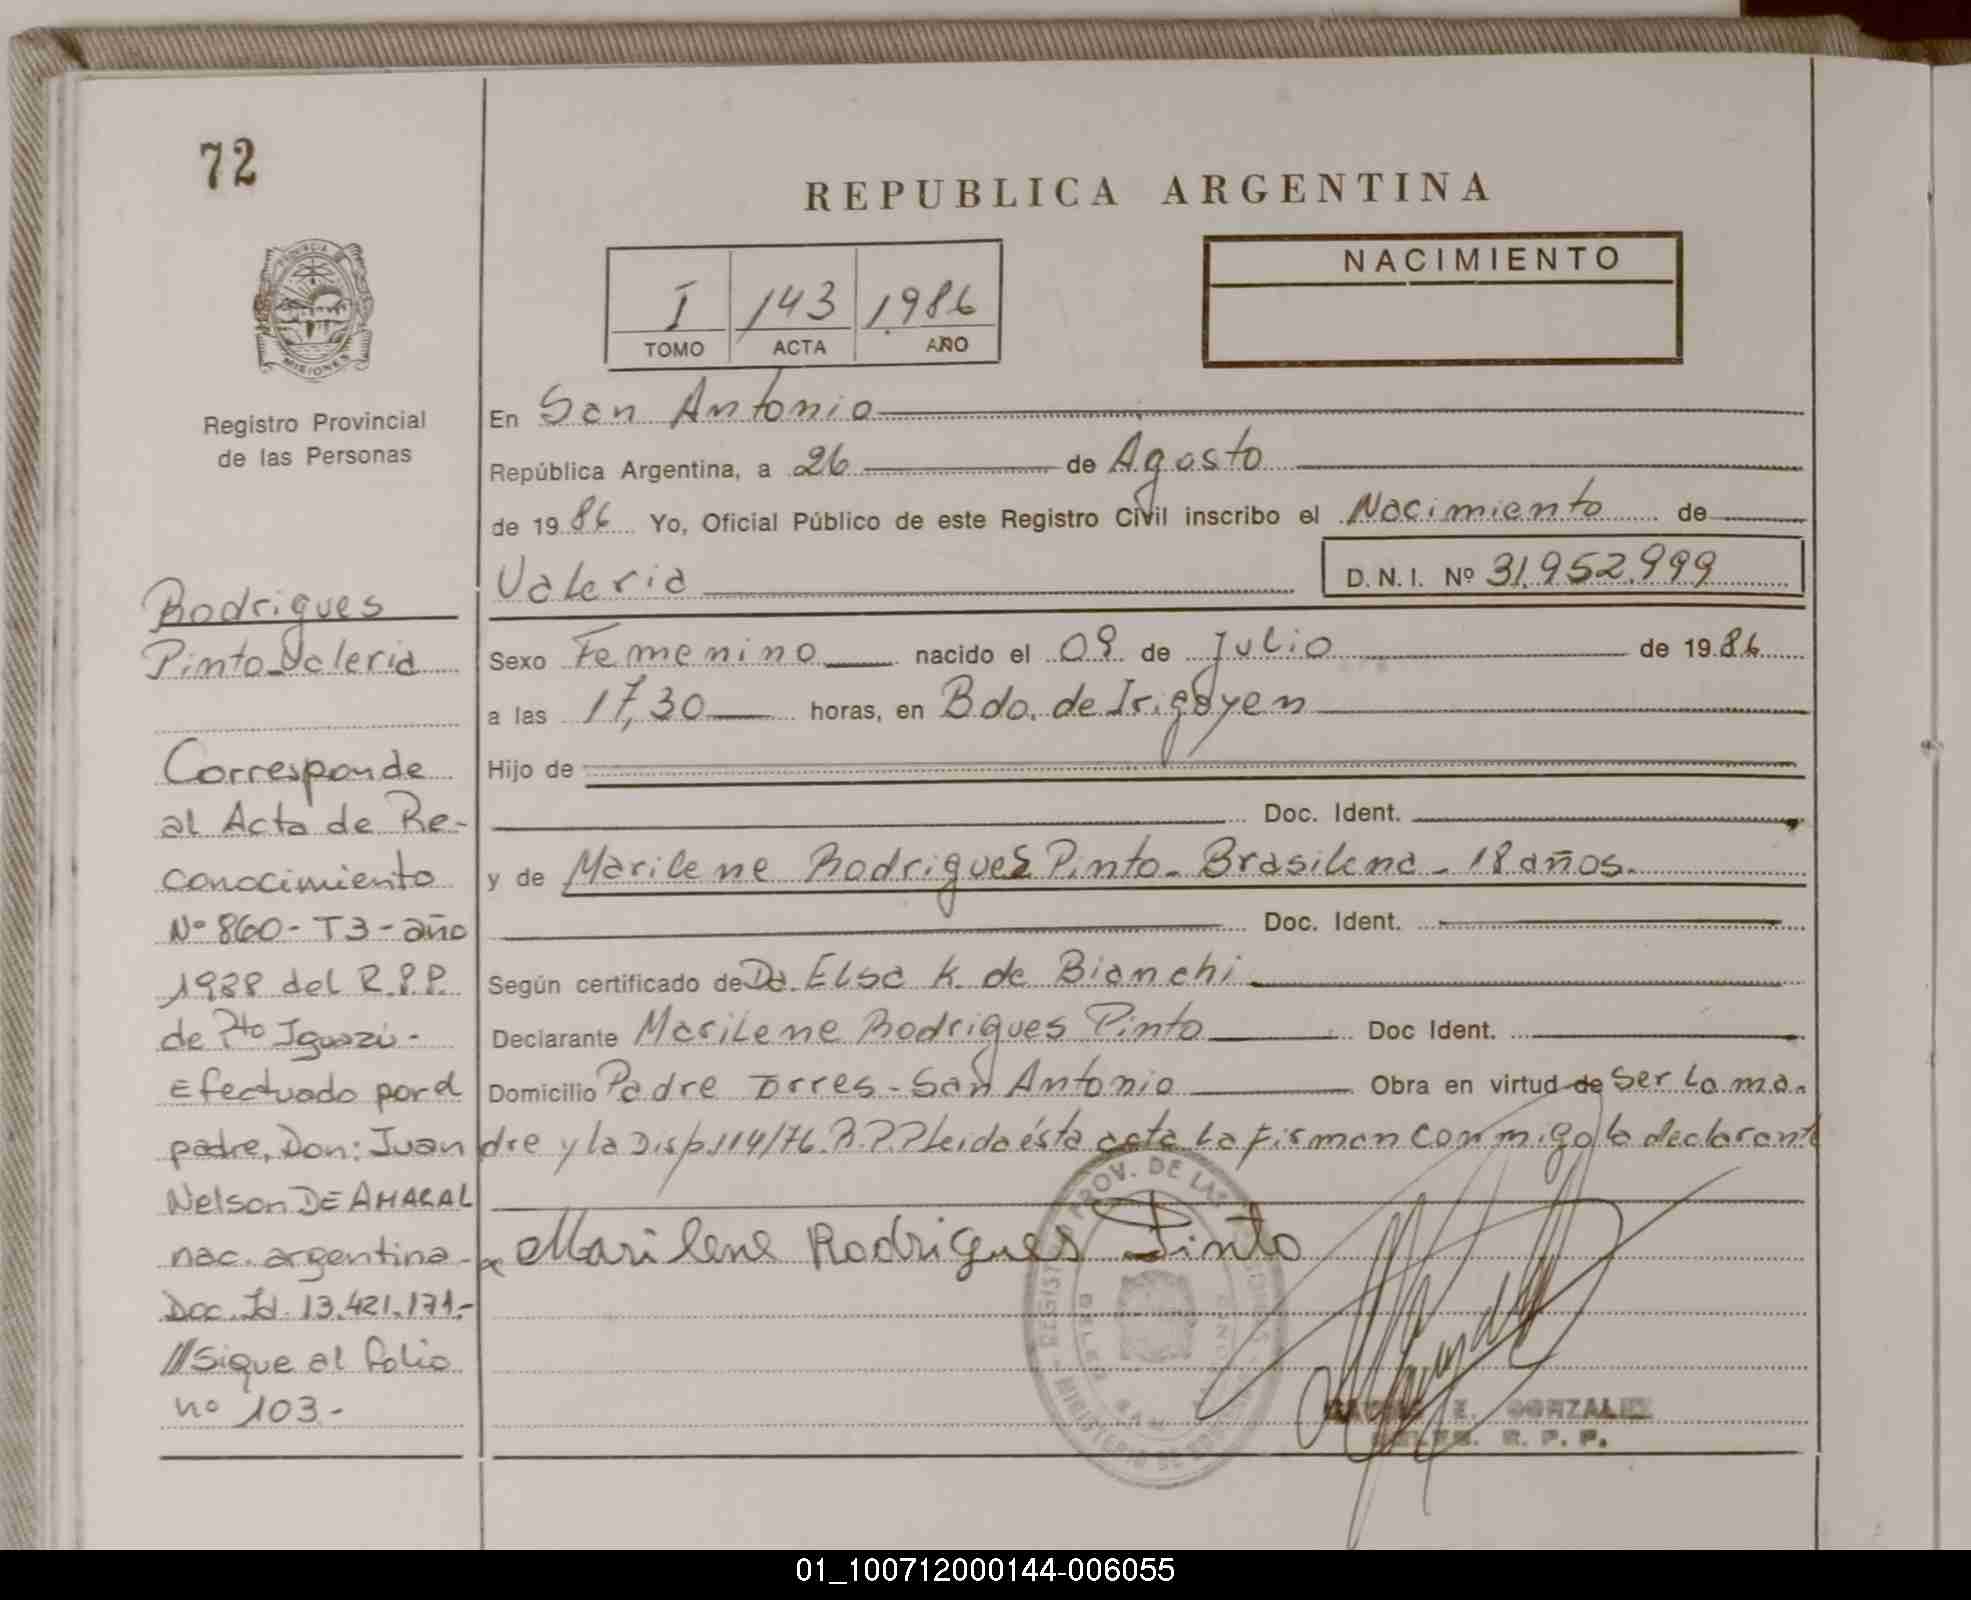 72
REPUBLICA ARGENTINA
PROVINCIA
MISIONES
I 143 1986
TOMO ACTA AÑO
NACIMIENTO
Registro Provincial
de las Personas
Rodrigues
Pinto Valeria
Corresponde
al Acta de Re-
conocimiento
Nº 860 - T3 - año
1988 del R.P.P.
de Pto Iguazú -
Efectuado por el
padre, Don: Juan
Nelson DE AMARAL
nac. argentina -
Doc. Id. 13.421.171.-
//Sigue al folio
nº 103 -
En San Antonio
República Argentina, a 26 de Agosto
de 1986 Yo, Oficial Público de este Registro Civil inscribo el Nacimiento de
Valeria D.N.I. Nº 31.952.999
Sexo Femenino nacido el 09 de Julio de 1986
a las 17,30 horas, en Bdo. de Irigoyen
Hijo de
Doc. Ident.
y de Marilene Rodrigues Pinto - Brasilena - 18 años.
Doc. Ident.
Según certificado de Da. Elsa K. de Bianchi
Declarante Marilene Rodrigues Pinto Doc Ident.
Domicilio Padre Torres - San Antonio Obra en virtud de Ser La ma.
dre y la Disp. 114/76. R.P.P Leida ésta acta La firman conmigo la declarante
Marilene Rodrigues Pinto
REGISTRO PROV. DE LAS
MINISTERIO DE
E. GONZALEZ
R. P. P.
01_100712000144-006055